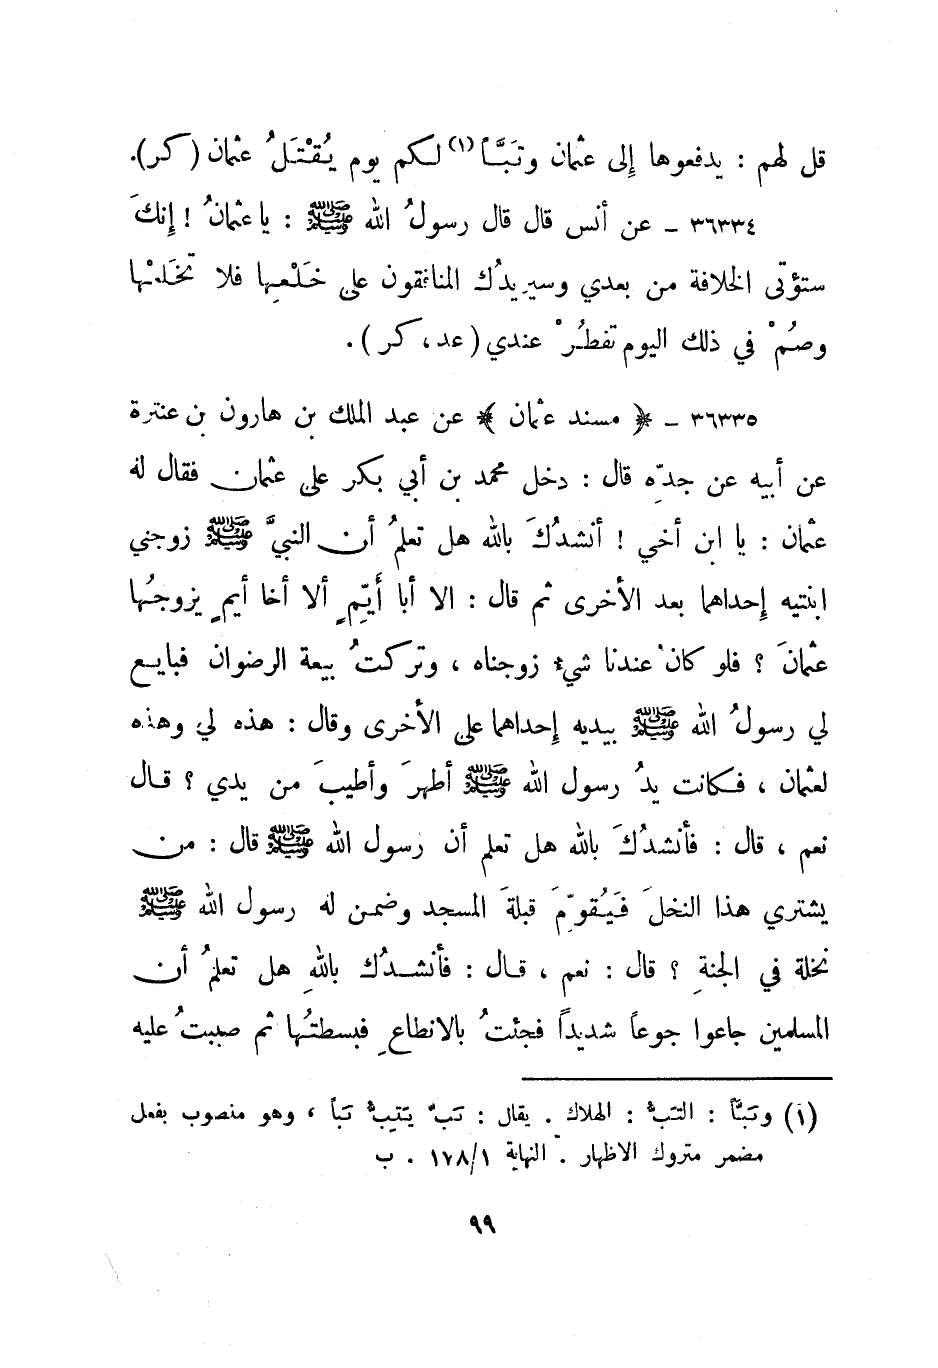 قل لهم : يدفعوها إلى عثمان وتَبَّاً (١) لكم يوم يُقْتَلُ عثمان (كر).
٣٦٣٣٤ ـ عن أنس قال قال رسولُ الله ﷺ : يا عثمانُ ! إنكَ
ستؤتى الخلافة من بعدي وسيريدُك المنافقون على خَلْعِها فلا تخْلَعْها
وصُمْ في ذلك اليوم تفطُرْ عندي ( عد ، كر ) .
٣٦٣٣٥ ـ ﴿ مسند عثمان ﴾ عن عبد الملك بن هارون بن عنترة
عن أبيه عن جدّه قال : دخل محمد بن أبي بكر على عثمان فقال له
عثمان : يا ابن أخي ! أنشدُكَ بالله هل تعلمُ أن النبيَّ ﷺ زوجني
ابنتيه إحداهما بعد الأخرى ثم قال : الا أبا أَيِّمٍ ألا أخا أيمٍ يزوجُها
عثمانَ ؟ فلو كان عندنا شيء زوجناه ، وتركتُ بيعة الرضوان فبايع
لي رسولُ الله ﷺ بيديه إحداهما على الأخرى وقال : هذه لي وهذه
لعثمان ، فكانت يدُ رسول الله ﷺ أطهرَ وأطيبَ من يدي ؟ قال
نعم ، قال : فأنشدُكَ بالله هل تعلم أن رسول الله ﷺ قال : من
يشتري هذا النخلَ فَيُقوِّمَ قبلةَ المسجد وضمن له رسول الله ﷺ
نخلة في الجنةِ ؟ قال : نعم ، قال : فأنشدُك باللهِ هل تعلمُ أن
المسلمين جاعوا جوعاً شديداً فجئتُ بالانطاعِ فبسطتُها ثم صببتُ عليه
(١) وتبَّاً : التبُّ : الهلاك . يقال : تبَّ يتبُّ تباً ، وهو منصوب بفعل
مضمر متروك الاظهار . النهاية ١٧٨/١ . ب
٩٩